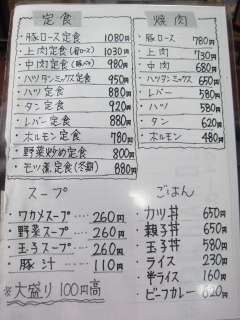 定食
豚ロース定食 1080円
上肉定食(肩ロース) 1030円
中肉定食(豚バラ) 980円
ハツタンミックス定食 950円
ハツ定食 880円
タン定食 920円
レバー定食 880円
ホルモン定食 780円
野菜炒め定食 800円
モツ煮定食(冬期) 880円
焼肉
豚ロース 780円
上肉 730円
中肉 680円
ハツタンミックス 650円
レバー 580円
ハツ 580円
タン 620円
ホルモン 480円
スープ
・ワカメスープ…260円
・野菜スープ…260円
・玉子スープ…260円
・豚汁…110円
※大盛り100円高
ごはん
・カツ丼 650円
・親子丼 650円
・玉子丼 580円
・ライス 230円
・半ライス 160円
・ビーフカレー 620円